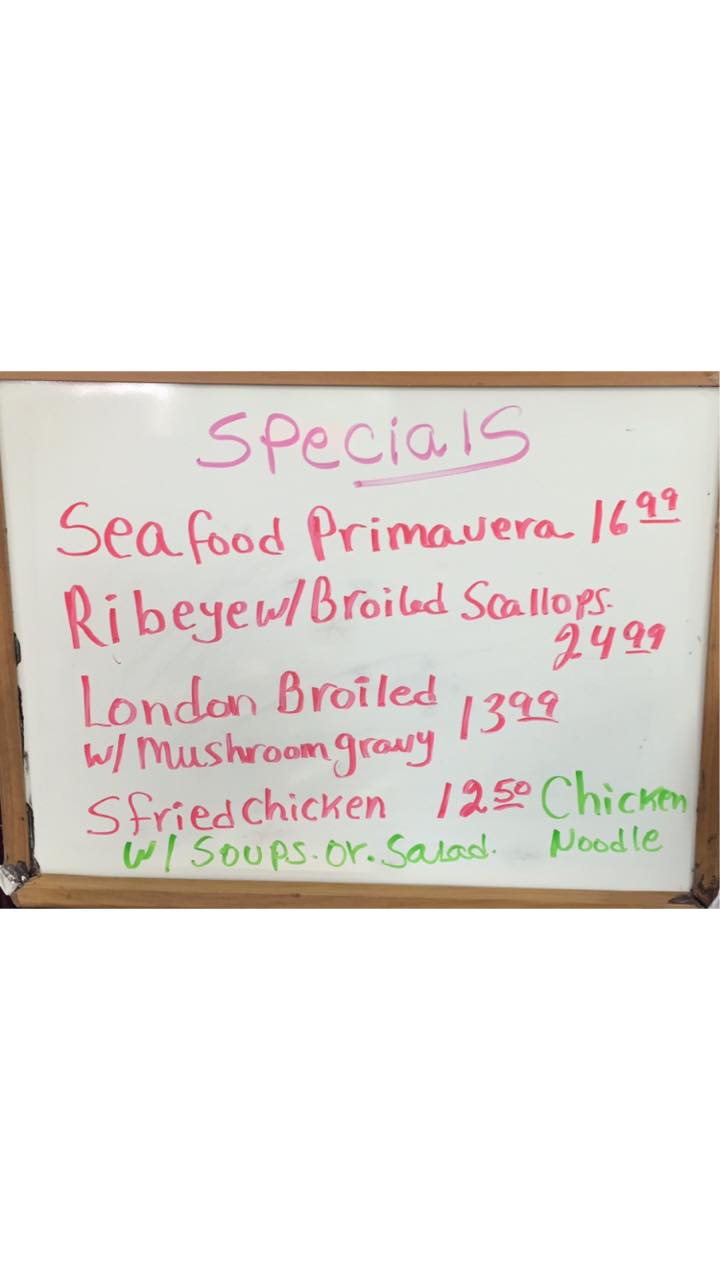 Specials
Seafood Primavera 16 99
Ribeye w/ Broiled Scallops.
24 99
London Broiled 13 99
w/ Mushroom gravy
S fried chicken 12 50 Chicken
w/ Soups. or. Salad. Noodle